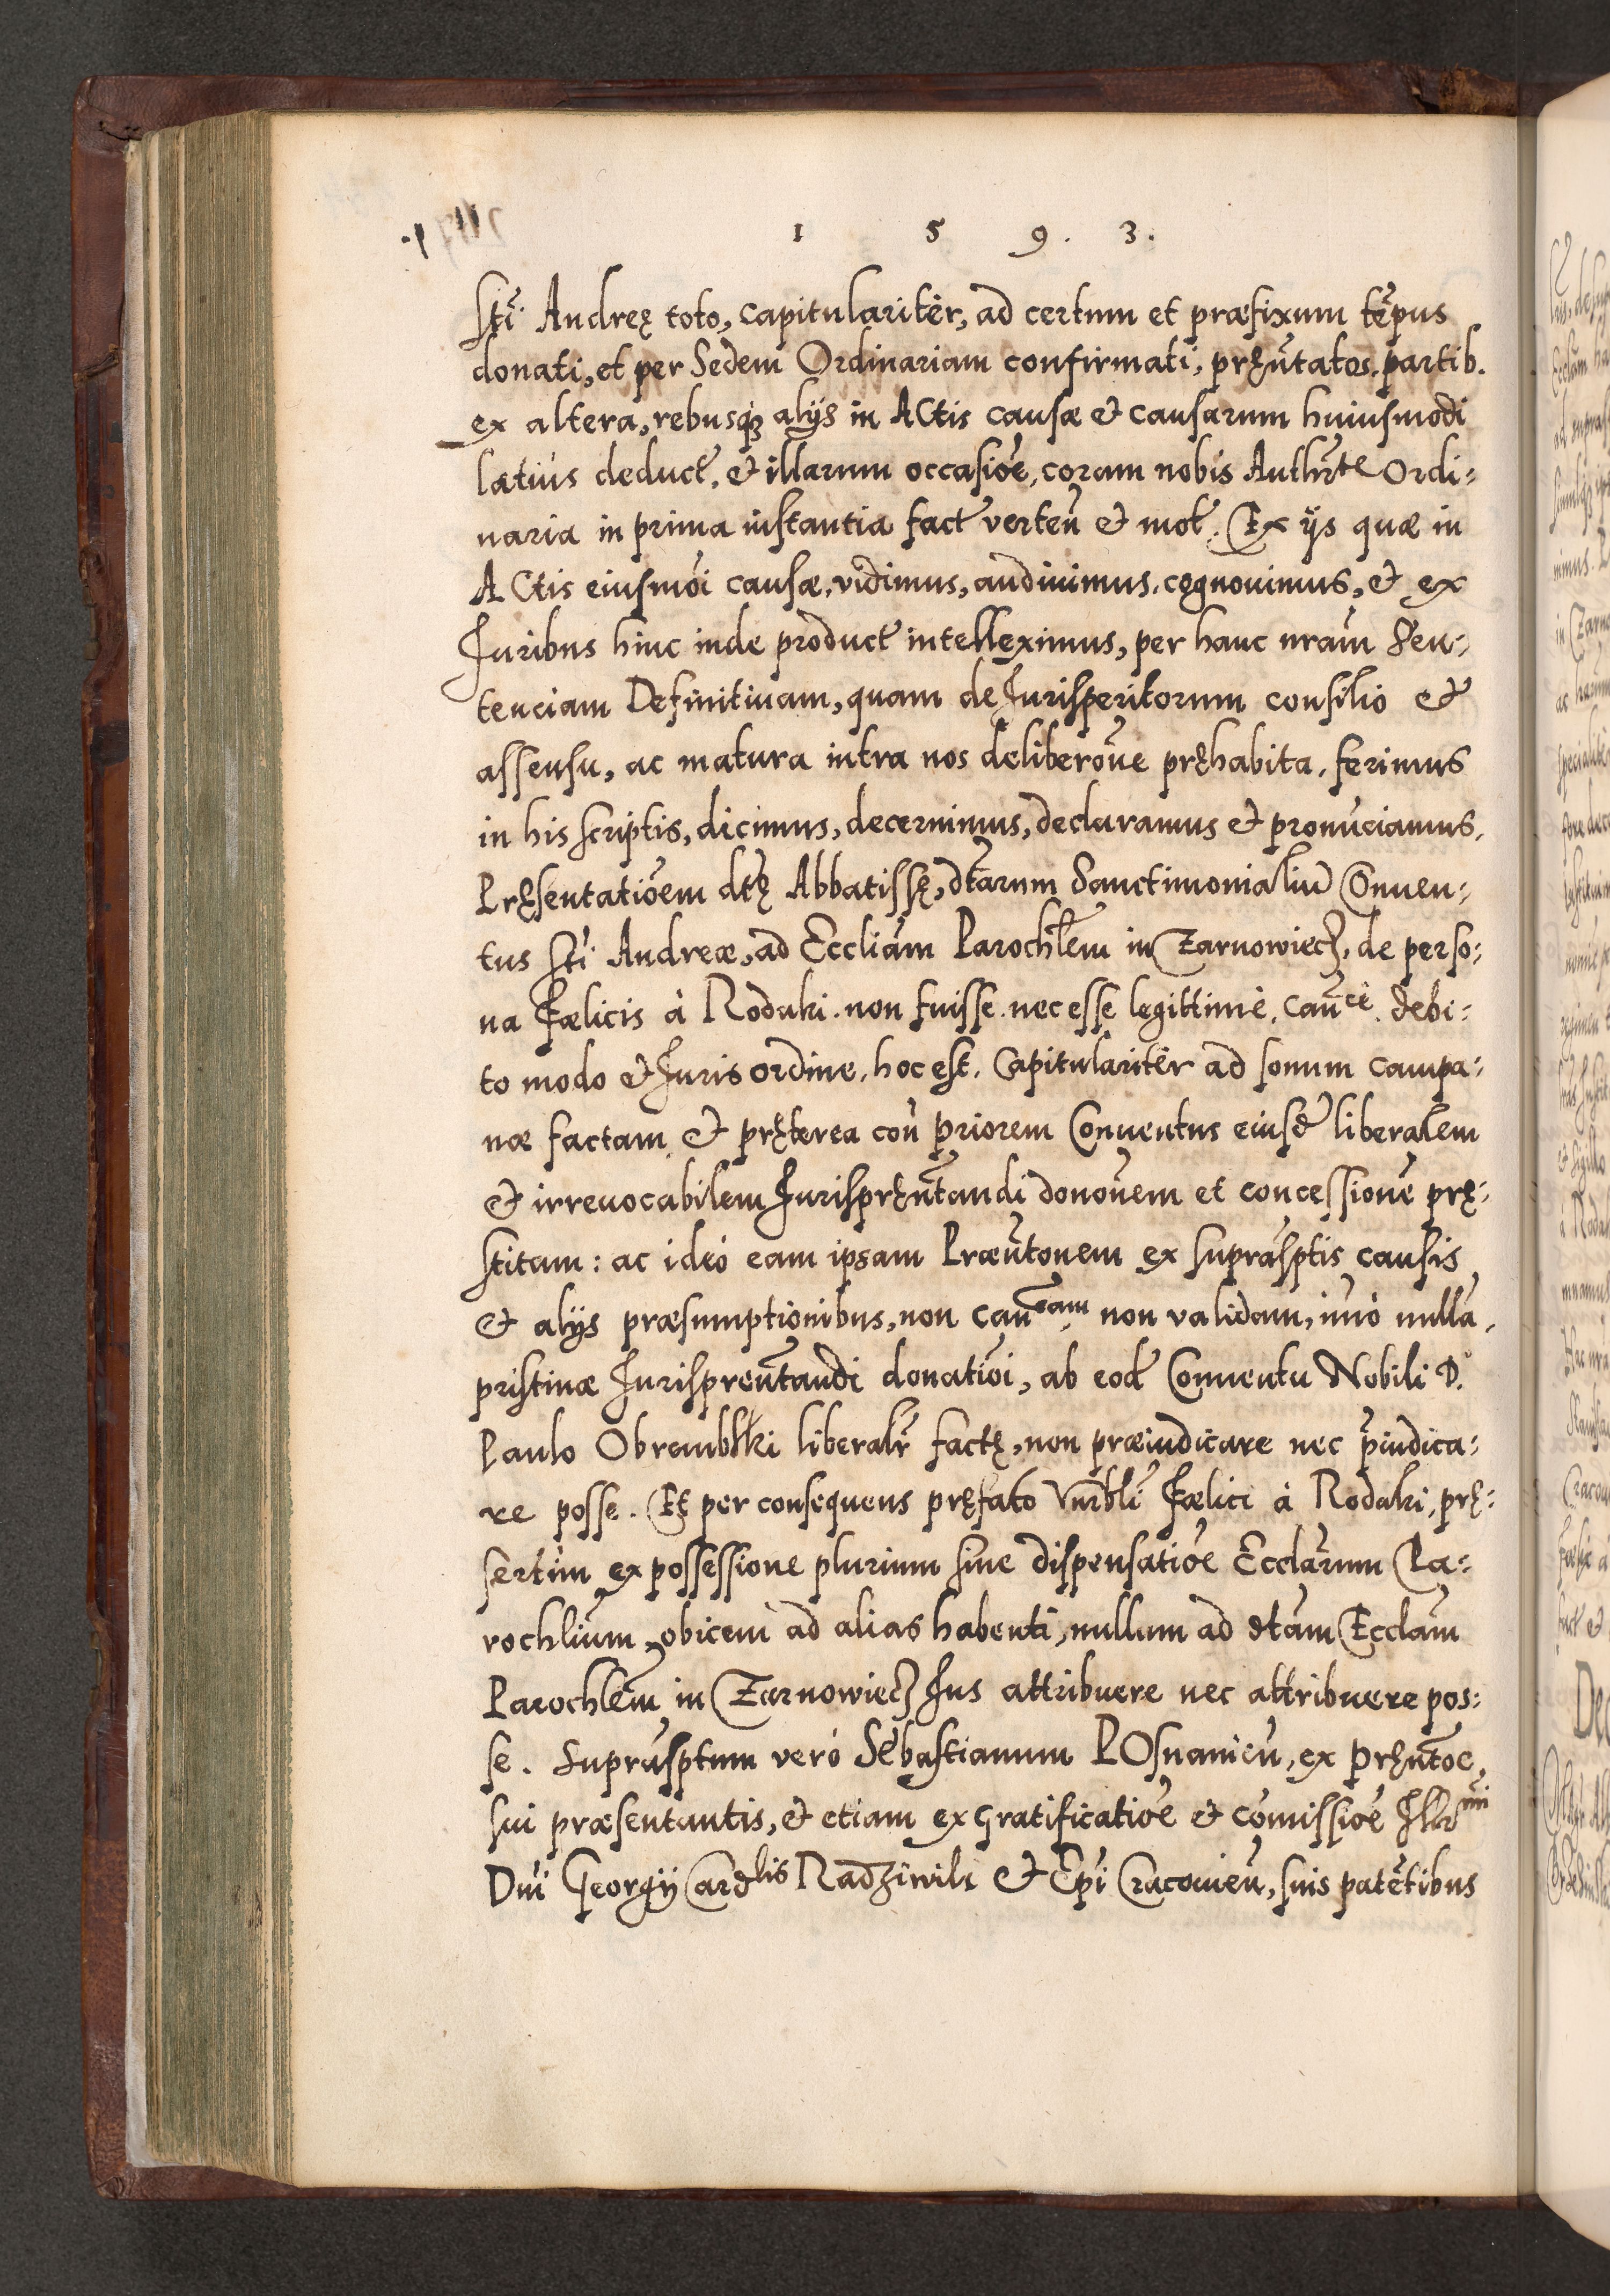 1 5 9. 3.
Sti Andreę toto, capitularitèr, ad certum et præfixum tẽpus
donati, et per Sedem Ordinariam confirmati, pręñtatos, partib.
ex altera, rebusq̃ʒ alijs in ACtis causæ & causarum huiusmodi
latiùs deduct̃. & illarum occasiõe, coram nobis Authrte Ordi:
naria in prima instantia fact̃ verteñ & mot̃. Ex ijs quæ in
ACtis eiusmõi causæ, vidimus, audiuimus, cognouimus, & ex
Juribus hinc inde product̃ intelleximus, per hanc nrãm Sen:
tenciam Definitiuam, quam de Jurisperitorum consilio &
assensu, ac matura intra nos deliberõne pręhabita, ferimus
in his scriptis, dicimus, decernimus, declaramus & pronũciamus,
Pręsentatiõem dtę̃ Abbatissę, dtãrum Sanctimonialiũ Conuen:
tus Sti Andreæ, ad Eccliãm Parochl̃em in Zarnowiecz, de perso:
na Fælicis à Rodaki non fuisse nec esse legittimè, cañcè debi:
to modo & Juris ordine, hoc est, Capitularitèr ad sonum campa:
næ factam, & pręterea coñ priorem Conuentus eiusd̃ liberalem
& irreuocabilem Jurispręñtandi donõnem et concessionẽ prę:
stitam: ac ideò eam ipsam Præñtonem ex suprãsptis causis
& alijs præsumptionibus, non cañcam non validam, imò nullã,
pristinæ Jurispreñtandi donatiõi, ab eod̃ Conuentu Nobili D.
Paulo Obrembski liberalr̃ factę, non præiudicare nec p̃iudica:
re posse. Et per consequens pręfato Vnrbli Fælici à Rodaki, prę:
sertìm ex possessione plurium sine dispensatiõe Ecclãrum Pa:
rochlium, obicem ad alias habenti, nullum ad dtãm Ecclãm
Parochlẽm in Zarnowiecz Jus attribuere nec attribuere pos:
se. Suprãsptum verò Sebastianum POsnanieñ, ex pręñtõe,
sui præsentantis, & etiam ex gratificatiõe & cõmissiõe Jllrmi
Dni Georgij Cardlis Radziwili & Epi Cracouieñ, suis patẽtibus